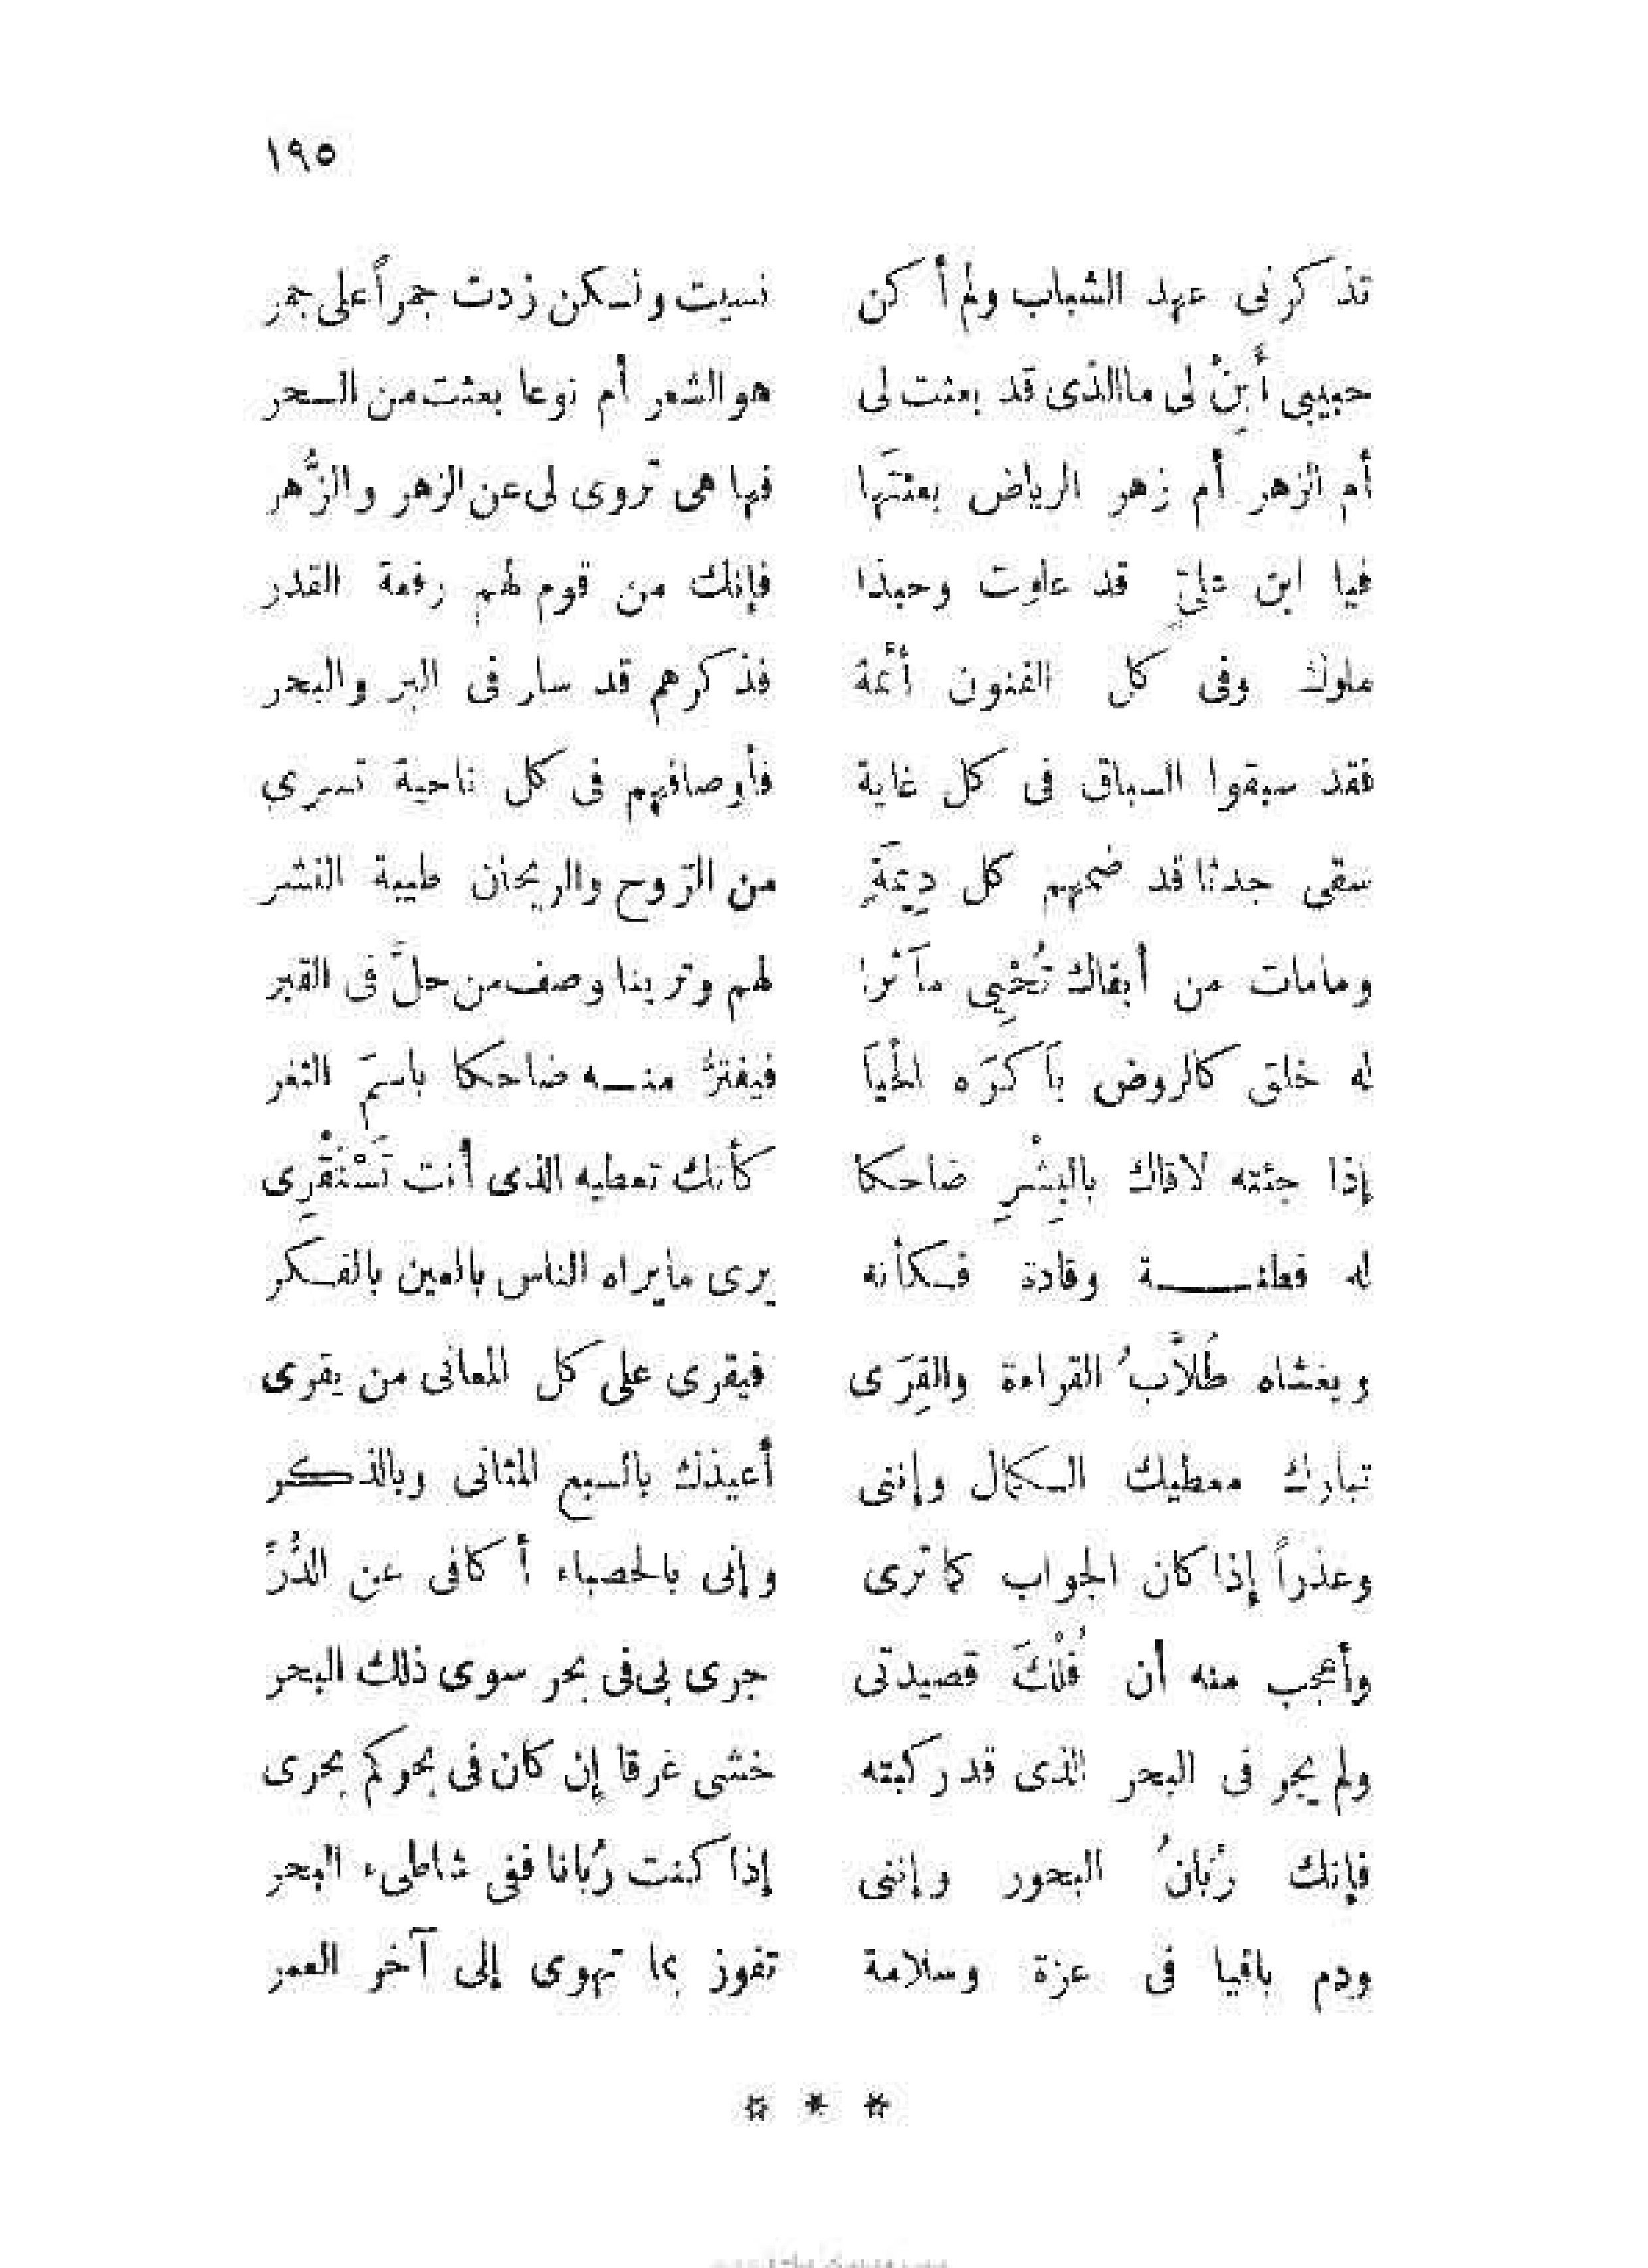 ١٩٥
تذكرنى عهد الشباب ولم أكن نسيت ولكن زدت جمراً على جمر
حبيبى أَبِنْ لى ماالذى قد بعثت لى هو الشعر أم نوعا بعثت من السحر
أم الزهر أم زهر الرياض بعثتَها فها هى تروى لى عن الزهر والزُّهر
فيا ابن علىٍّ قد علوت وحبذا فإنك من قوم لهم رفعة القدر
ملوك وفى كل الفنون أئمة فذكرهم قد سار فى البر والبحر
فقد سبقوا السباق فى كل غاية فأوصافهم فى كل ناحية تسرى
سقى جدثا قد ضمهم كل دِيمَةٍ من الرَّوح والريحان طيبة النشر
ومامات من أبقاك تُحْيِى مآثرا لهم وترينا وصف من حلَّ فى القبر
له خلق كالروض بَاكَرَه الحْيَا فيفترُّ منه ضاحكا باسمَ الثغر
إذا جئته لاقاك بالبِشْرِ ضاحكا كأنك تعطيه الذى أنت تَسْتَقْرِى
له فطنة وقادة فكأنه يرى مايراه الناس بالعين بالفكر
ويغشاه طُلاَّبُ القراءة والقِرَى فيقرى على كل المعانى من يقرى
تبارك معطيك الكمال وإننى أعيذك بالسبع المثانى وبالذكر
وعذراً إذا كان الجواب كما ترى وإنى بالحصباء أكافى عن الدُّرِّ
وأعجب منه أن فُلْكَ قصيدتى جرى بى فى بحر سوى ذلك البحر
ولم يجر فى البحر الذى قد ركبته خشى غرقا إن كان فى بحركم يجرى
فإنك رُبانُ البحور وإننى إذا كنت رُبانا ففى شاطىء البحر
ودم باقيا فى عزة وسلامة تفوز بما تهوى إلى آخر العمر
* * *